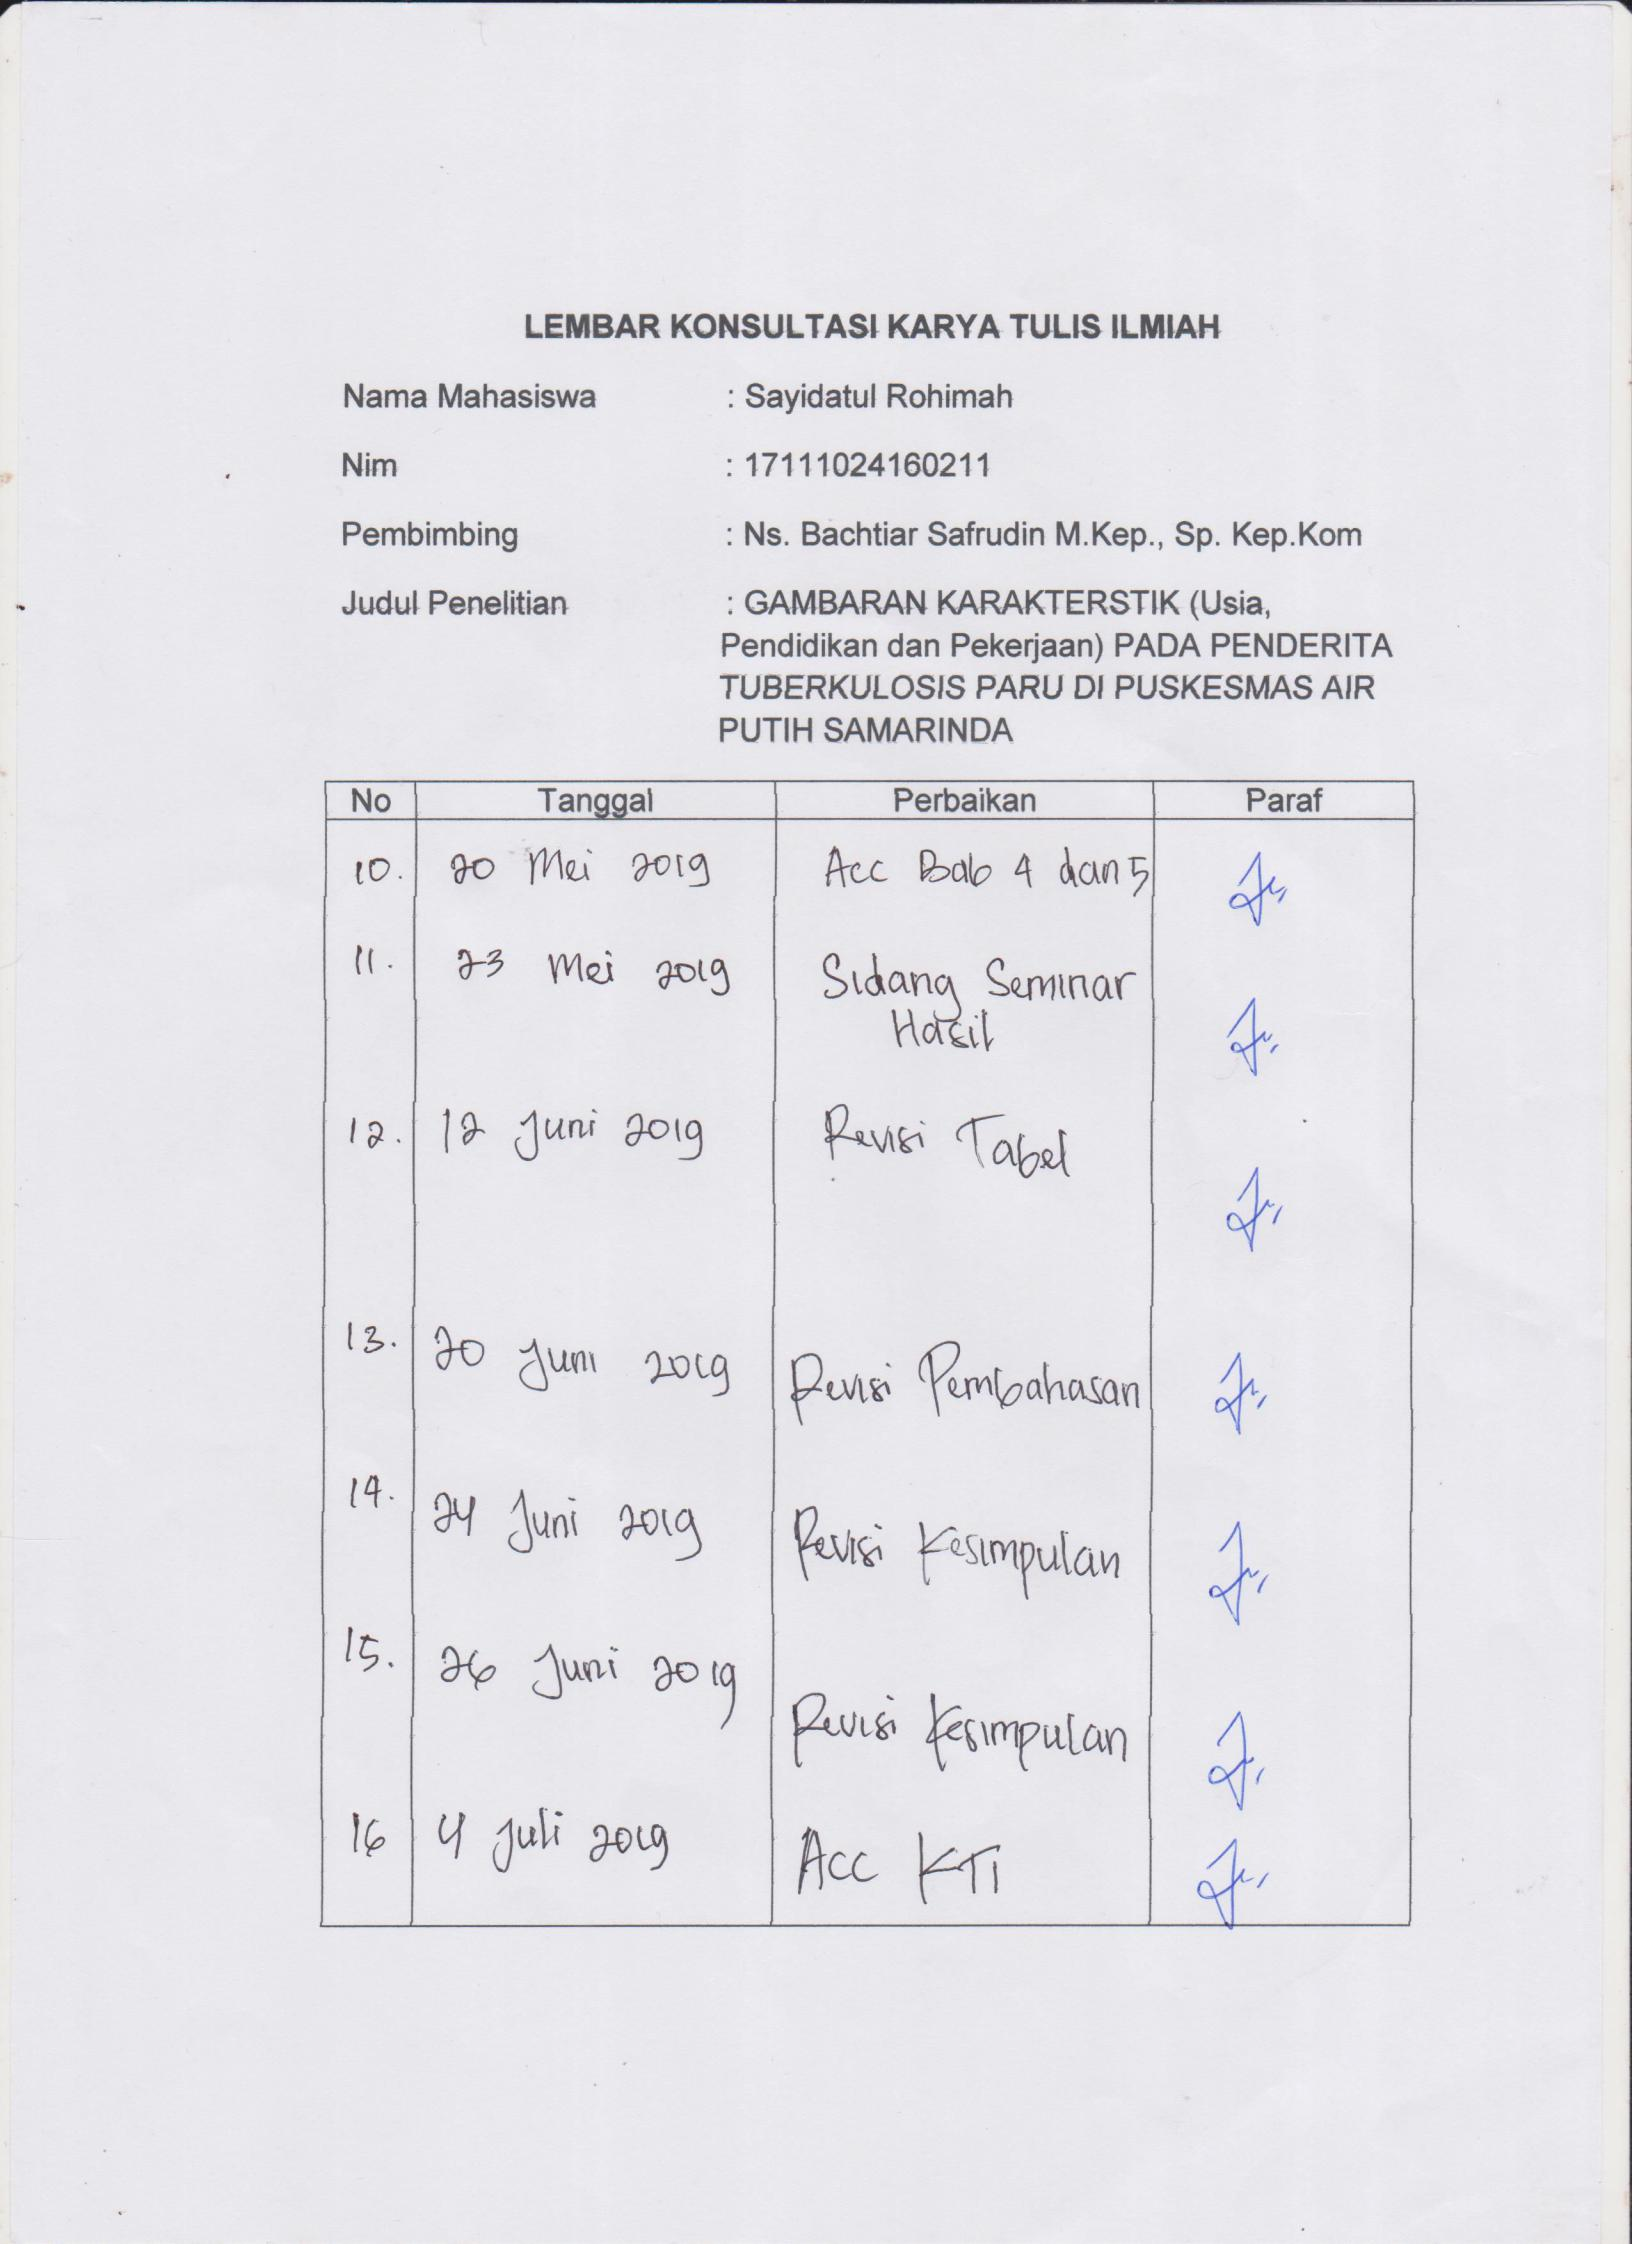 LEMBAR KONSULTASI KARYA TULIS ILMIAH
Nama Mahasiswa : Sayidatul Rohimah
Nim : 17111024160211
Pembimbing : Ns. Bachtiar Safrudin M.Kep., Sp. Kep.Kom
Judul Penelitian : GAMBARAN KARAKTERSTIK (Usia,
Pendidikan dan Pekerjaan) PADA PENDERITA
TUBERKULOSIS PARU DI PUSKESMAS AIR
PUTIH SAMARINDA
No Tanggal Perbaikan Paraf
10. 20 Mei 2019 Acc Bab 4 dan 5
11. 23 Mei 2019 Sidang Seminar
Hasil
12. 12 Juni 2019 Revisi Tabel
13. 20 Juni 2019 Revisi Pembahasan
14. 24 Juni 2019 Revisi Kesimpulan
15. 26 Juni 2019 Revisi Kesimpulan
16 4 Juli 2019 Acc KTI